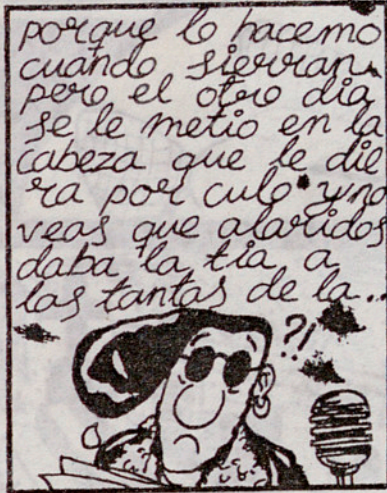 porque lo hacemo
cuando sierran.
pero el otro dia
se le metio en la
cabeza que le die
ra por culo y no
veas que alaridos
daba la tia a
las tantas de la...
?!